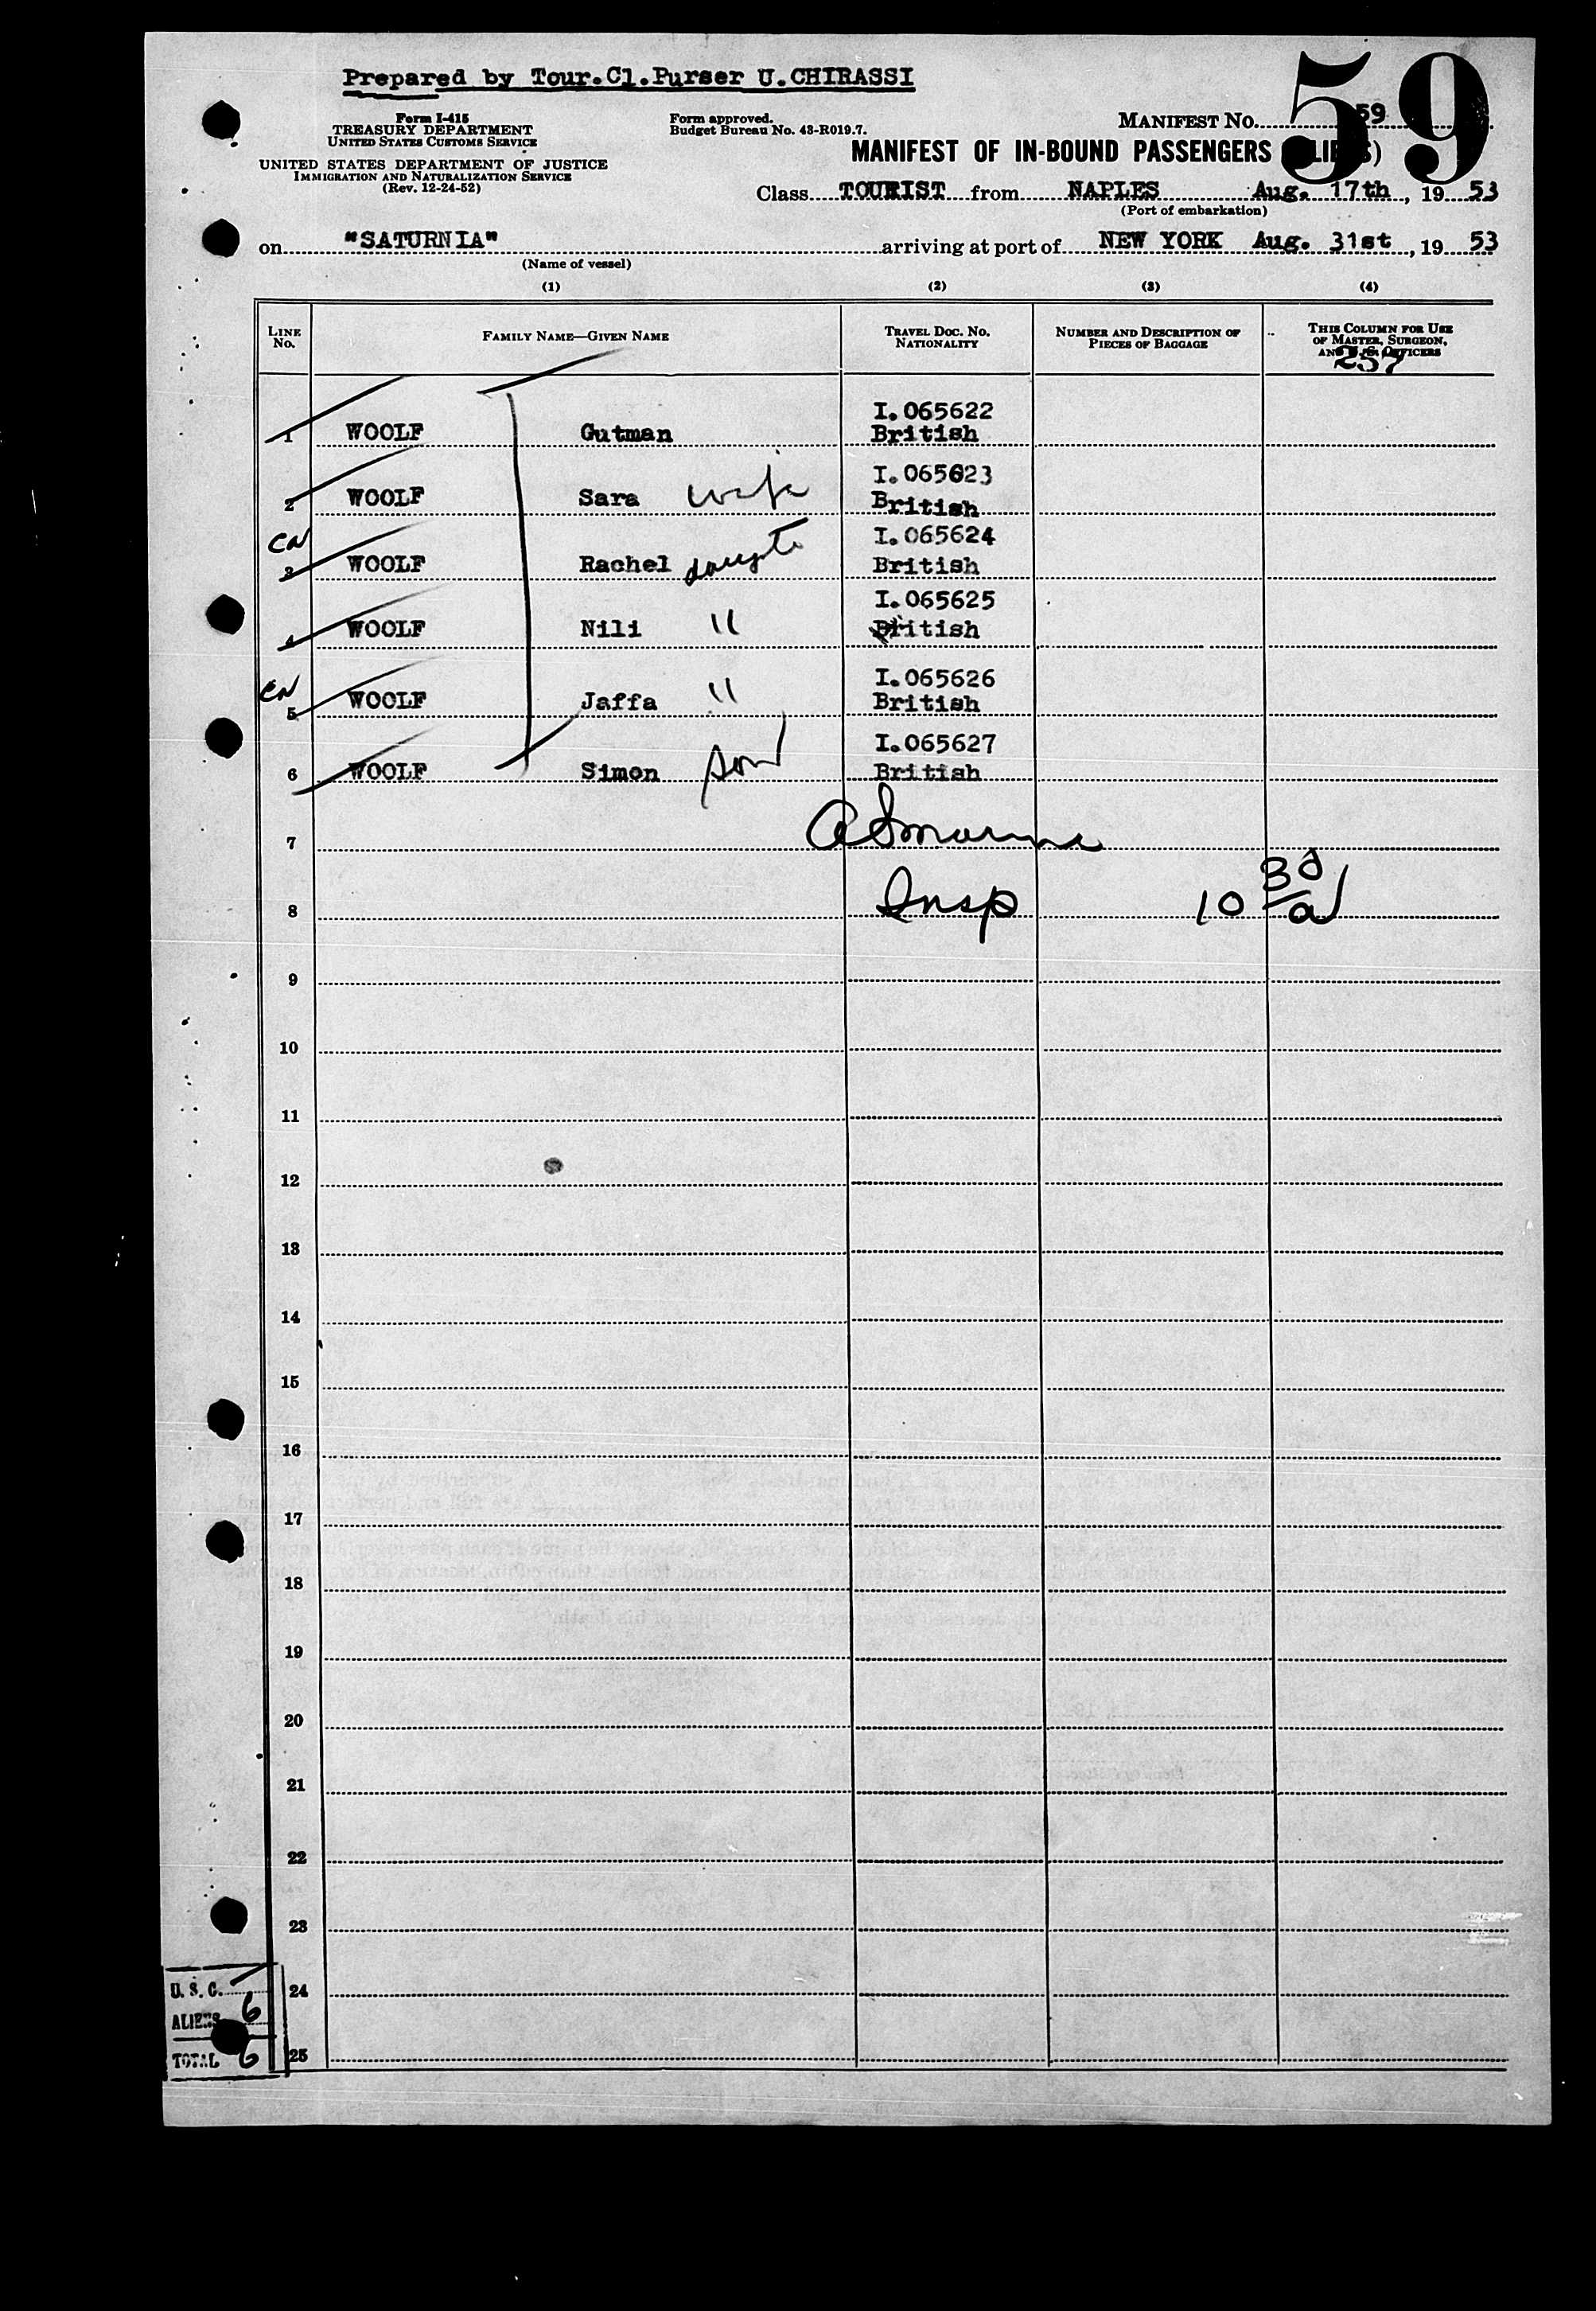 Prepared by Tour.Cl.Purser U.CHIRASSI
59
Form I-415
TREASURY DEPARTMENT
UNITED STATES CUSTOMS SERVICE
UNITED STATES DEPARTMENT OF JUSTICE
IMMIGRATION AND NATURALIZATION SERVICE
(Rev. 12-24-52)
Form approved.
Budget Bureau No. 43-R019.7.
MANIFEST NO. 59
MANIFEST OF IN-BOUND PASSENGERS (ALIENS)
Class TOURIST from NAPLES Aug. 17th, 19 53
(Port of embarkation)
on "SATURNIA" arriving at port of NEW YORK Aug. 31st, 19 53
(Name of vessel)
(1) (2) (3) (4)
LINE NO.
FAMILY NAME—GIVEN NAME
TRAVEL DOC. NO. NATIONALITY
NUMBER AND DESCRIPTION OF PIECES OF BAGGAGE
THIS COLUMN FOR USE OF MASTER, SURGEON, AND U. S. OFFICERS
257
I.065622
1 WOOLF Gutman British
I.065623
2 WOOLF Sara wife British
CN I.065624
3 WOOLF Rachel British
I.065625
4 WOOLF Nili " British
CN I.065626
5 WOOLF Jaffa " British
I.065627
6 WOOLF Simon son British
7
8 Insp 10 30/a
9
10
11
12
13
14
15
16
17
18
19
20
21
22
23
24
25
U. S. C.
ALIENS 6
TOTAL 6